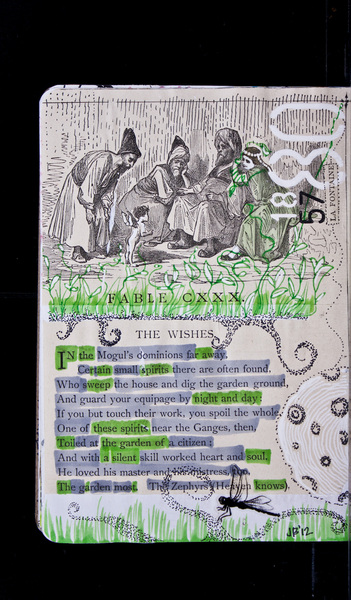 1880
57
LA FONTAINE
FABLE CXXX.
THE WISHES
IN the Mogul's dominions far away,
Certain small spirits there are often found,
Who sweep the house and dig the garden ground,
And guard your equipage by night and day:
If you but touch their work, you spoil the whole.
One of these spirits near the Ganges, then,
Toiled at the garden of a citizen;
And with a silent skill worked heart and soul.
He loved his master and his mistress, too,
The garden most. The Zephyrs (Heaven knows)
JB'12